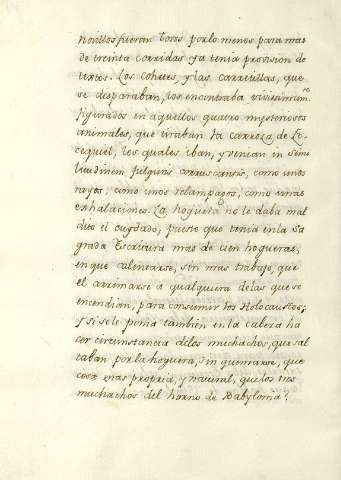 Novillos fueran toros por lo menos para mas
de treinta corridas ya tenia provision de
textos. Los cohetes, y las carretillas, que
se disparaban, los encontraba vivissimamte
figurados en aquellos quatro mysteriosos
animales, que tiraban la carroza de Ec-
cequiel, los quales iban, y venian in simi
litudinem fulguris coruscantis, como unos
rayos, como unos relampagos, como unas
exhalaciones. La hoguera no le daba mal
dito el cuydado, puesto que tenia en la Sa
grada Escritura mas de cien hogueras,
en que calentarse, sin mas trabajo, que
el arrimarse a qualquiera de las que se
encendian, para consumir los Holocaustos;
y si se le ponia tambien en la cabeza ha
cer circunstancia de los muchachos, que sal
taban por la hoguera, sin quemarse, que
cosa mas propria, y natural, que los tres
muchachos del horno de Babylonia?